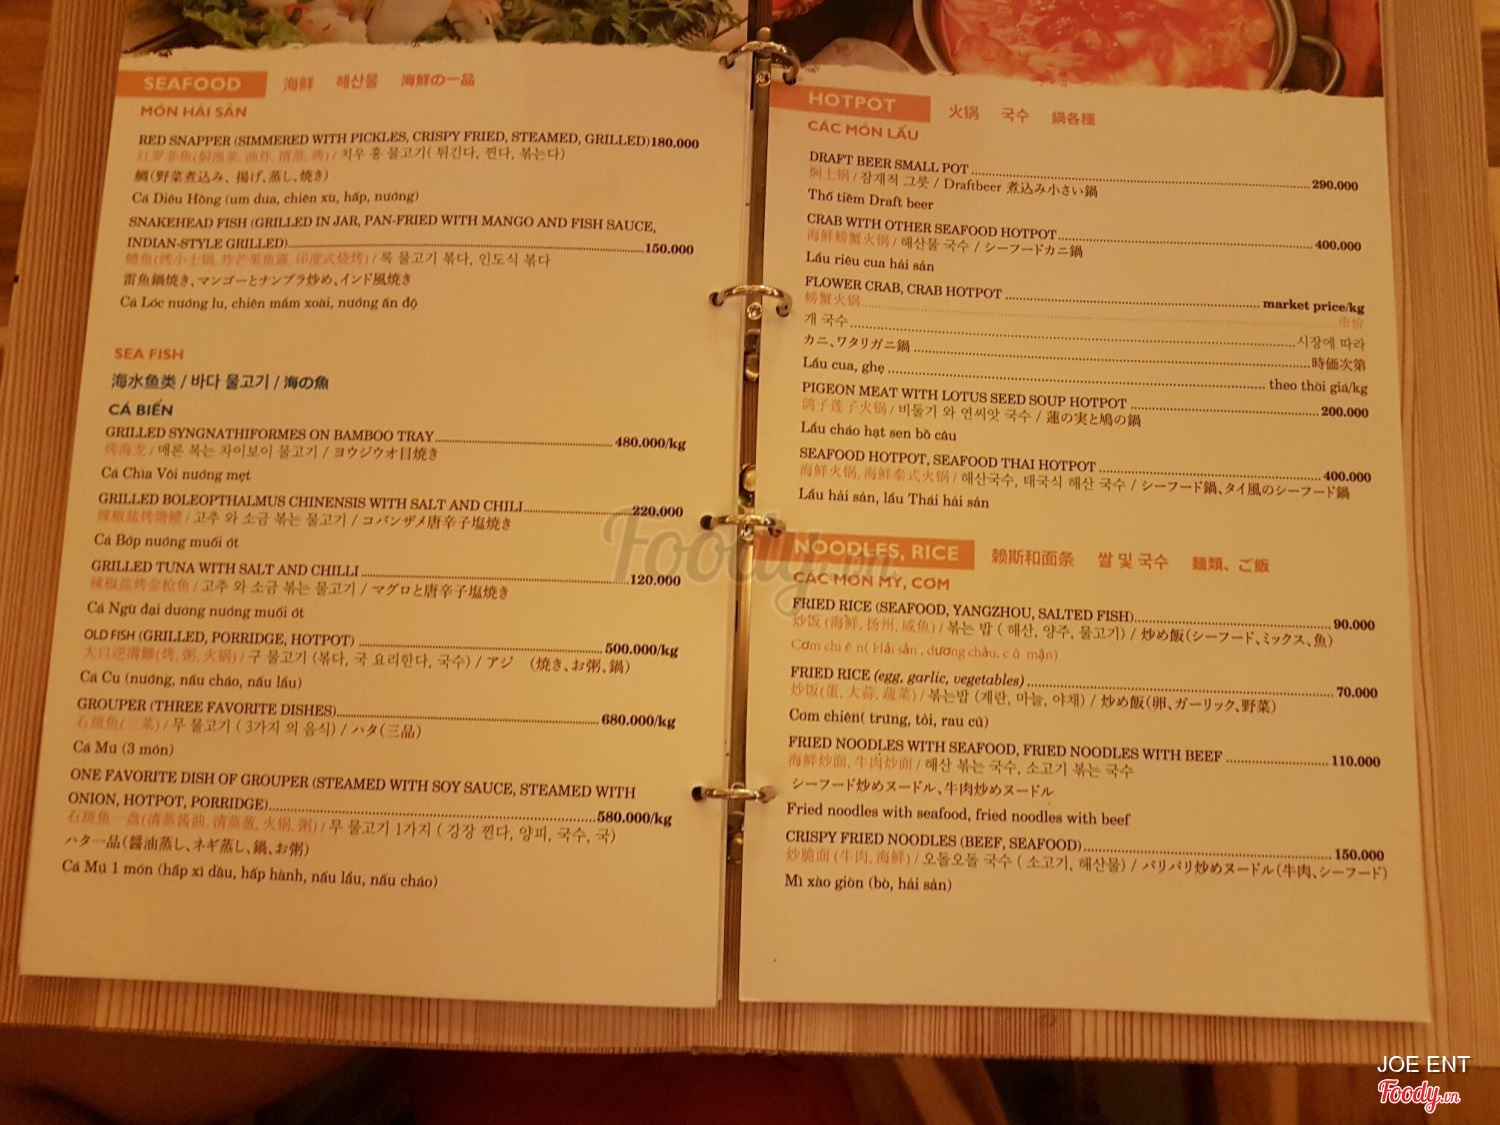 SEAFOOD 海鮮 해산물 海鮮の一品
MÓN HẢI SẢN
RED SNAPPER (SIMMERED WITH PICKLES, CRISPY FRIED, STEAMED, GRILLED)180.000
红萝非鱼(焖泡菜, 油炸, 清蒸, 烤) / 치우 홍 물고기( 튀긴다, 찐다, 볶는다)
鯛(野菜煮込み、揚げ、蒸し、焼き)
Cá Diêu Hồng (um dưa, chiên xù, hấp, nướng)
SNAKEHEAD FISH (GRILLED IN JAR, PAN-FRIED WITH MANGO AND FISH SAUCE,
INDIAN-STYLE GRILLED)..........150.000
鳢鱼(烤小土锅, 炸芒果鱼露, 印度式烧烤) / 록 물고기 볶다, 인도식 볶다
雷魚鍋焼き、マンゴーとナンプラ炒め、インド風焼き
Cá Lóc nướng lu, chiên mắm xoài, nướng ấn độ
SEA FISH
海水鱼类 / 바다 물고기 / 海の魚
CÁ BIỂN
GRILLED SYNGNATHIFORMES ON BAMBOO TRAY..........480.000/kg
烤海龙 / 매론 볶는 차이보이 물고기 / ヨウジウオ目焼き
Cá Chìa Vôi nướng mẹt
GRILLED BOLEOPTHALMUS CHINENSIS WITH SALT AND CHILI..........220.000
辣椒盐烤塘鳢 / 고추 와 소금 볶는 물고기 / コバンザメ唐辛子塩焼き
Cá Bớp nướng muối ớt
GRILLED TUNA WITH SALT AND CHILLI..........120.000
辣椒盐烤金枪鱼 / 고추 와 소금 볶는 물고기 / マグロと唐辛子塩焼き
Cá Ngừ đại dương nướng muối ớt
OLD FISH (GRILLED, PORRIDGE, HOTPOT)..........500.000/kg
大口逆溝鰺(烤, 粥, 火锅) / 구 물고기 (볶다, 국 요리한다, 국수) / アジ (焼き、お粥、鍋)
Cá Cu (nướng, nấu cháo, nấu lẩu)
GROUPER (THREE FAVORITE DISHES)..........680.000/kg
石斑鱼(三菜) / 무 물고기 ( 3가지 의 음식) / ハタ(三品)
Cá Mú (3 món)
ONE FAVORITE DISH OF GROUPER (STEAMED WITH SOY SAUCE, STEAMED WITH
ONION, HOTPOT, PORRIDGE)..........580.000/kg
石斑鱼一盘(清蒸酱油, 清蒸葱, 火锅, 粥) / 무 물고기 1가지 ( 강장 찐다, 양피, 국수, 국)
ハタ一品(醤油蒸し、ネギ蒸し、鍋、お粥)
Cá Mú 1 món (hấp xì dầu, hấp hành, nấu lẩu, nấu cháo)
HOTPOT 火锅 국수 鍋各種
CÁC MÓN LẨU
DRAFT BEER SMALL POT..........290.000
焖土锅 / 잠재적 그릇 / Draftbeer 煮込み小さい鍋
Thố tiềm Draft beer
CRAB WITH OTHER SEAFOOD HOTPOT..........400.000
海鲜螃蟹火锅 / 해산물 국수 / シーフードカニ鍋
Lẩu riêu cua hải sản
FLOWER CRAB, CRAB HOTPOT..........market price/kg
螃蟹火锅..........市价
개 국수..........시장에 따라
カニ、ワタリガニ鍋..........時価次第
Lẩu cua, ghẹ..........theo thời giá/kg
PIGEON MEAT WITH LOTUS SEED SOUP HOTPOT..........200.000
鸽子莲子火锅 / 비둘기 와 연씨앗 국수 / 蓮の実と鳩の鍋
Lẩu cháo hạt sen bồ câu
SEAFOOD HOTPOT, SEAFOOD THAI HOTPOT..........400.000
海鲜火锅, 海鲜泰式火锅 / 해산국수, 태국식 해산 국수 / シーフード鍋、タイ風のシーフード鍋
Lẩu hải sản, lẩu Thái hải sản
NOODLES, RICE 赖斯和面条 쌀 및 국수 麺類、ご飯
CÁC MÓN MỲ, CƠM
FRIED RICE (SEAFOOD, YANGZHOU, SALTED FISH)..........90.000
炒饭 (海鲜, 扬州, 咸鱼) / 볶는 밥 ( 해산, 양주, 물고기) / 炒め飯(シーフード、ミックス、魚)
Cơm chi ê n( Hải sản , dương châu, c á mặn)
FRIED RICE (egg, garlic, vegetables)..........70.000
炒饭(蛋, 大蒜, 蔬菜) / 볶는밥 (계란, 마늘, 야채) / 炒め飯(卵、ガーリック、野菜)
Cơm chiên( trứng, tỏi, rau củ)
FRIED NOODLES WITH SEAFOOD, FRIED NOODLES WITH BEEF..........110.000
海鲜炒面, 牛肉炒面 / 해산 볶는 국수, 소고기 볶는 국수
シーフード炒めヌードル、牛肉炒めヌードル
Fried noodles with seafood, fried noodles with beef
CRISPY FRIED NOODLES (BEEF, SEAFOOD)..........150.000
炒脆面 (牛肉, 海鲜) / 오돌오돌 국수 ( 소고기, 해산물) / パリパリ炒めヌードル(牛肉、シーフード)
Mì xào giòn (bò, hải sản)
Foody.vn
JOE ENT
Foody.vn